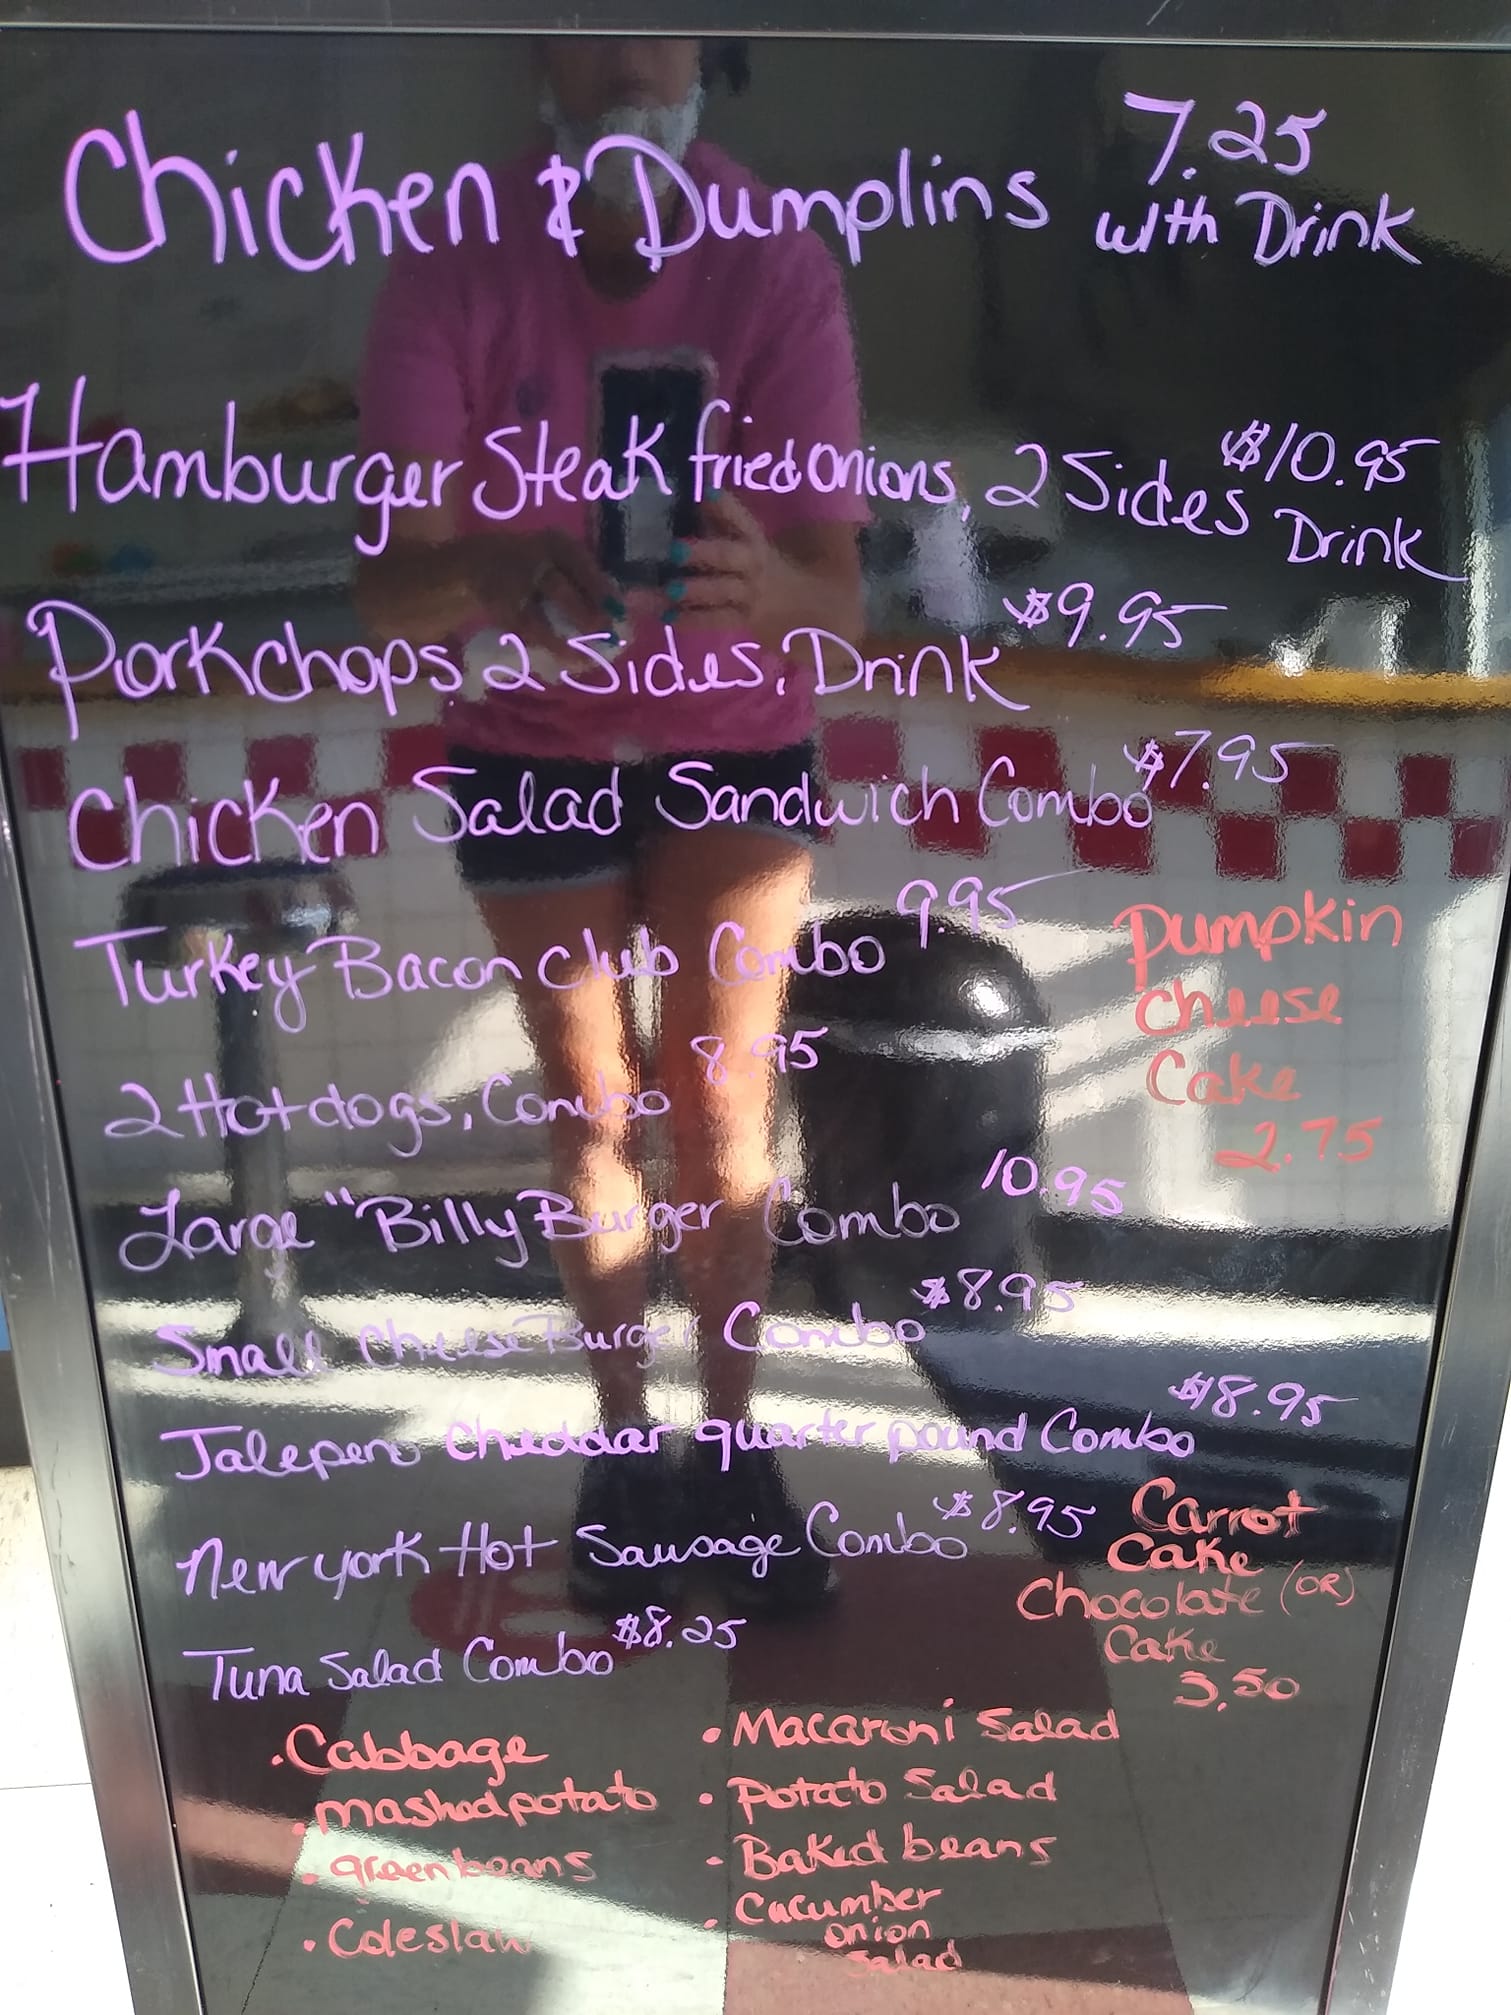 Chicken & Dumplins 7.25
with Drink
Hamburger Steak fried onions, 2 Sides $10.95
Drink
Porkchops 2 Sides, Drink $9.95
Chicken Salad Sandwich Combo $7.95
Turkey Bacon Club Combo 9.95
Pumpkin
Cheese
Cake
2.75
2 Hotdogs, Combo 8.95
Large "Billy Burger Combo 10.95
Small Cheese Burger Combo $8.95
Jalepeno Cheddar quarter pound Combo $8.95
New york Hot Sausage Combo $8.95
Carrot
Cake
Chocolate (OR)
Cake
3.50
Tuna Salad Combo $8.25
• Cabbage
• mashed potato
• green beans
• Coleslaw
• Macaroni Salad
• Potato Salad
• Baked beans
• Cucumber
onion
Salad